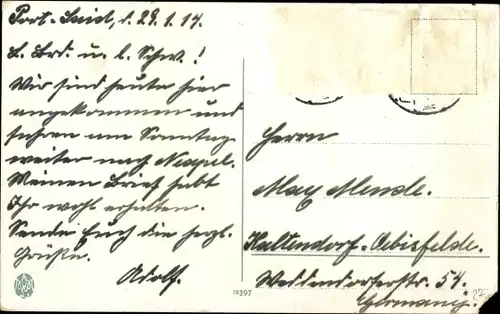 Port-Said, d. 29.1.14.
L. Brd. u. l. Schw.!
Wir sind heute hier
angekommen und
fahren am Sonntag
weiter nach Neapel.
Meinen Brief habt
Ihr wohl erhalten.
Sende Euch die herzl.
Grüße.
Adolf.
Herrn
Max Mende.
Kaltendorf-Oebisfelde.
Weddendorferstr. 54.
Germany.
19397